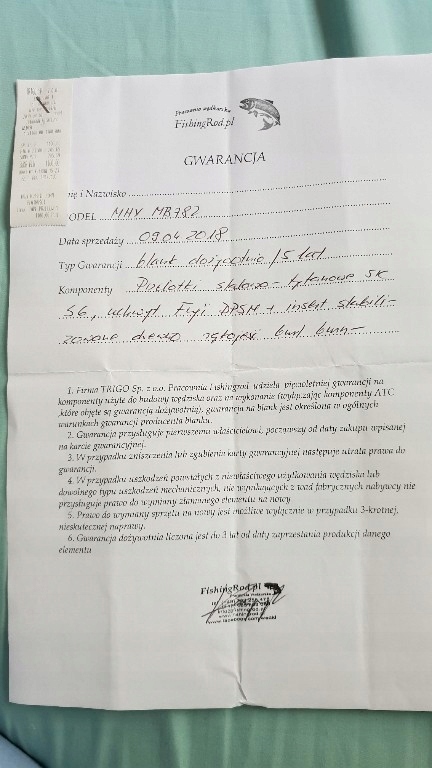 Pracownia wędkarska
FishingRod.pl
GWARANCJA
ię i Nazwisko
ODEL MHX MB782
Data sprzedaży 09.04.2018
Typ Gwarancji blank dożywotnia / 5 lat
Komponenty Przelotki stalowo-tytanowe SK
S6, uchwyt Fuji DPSM + insert stabili-
zowane drewno
1. Firma TRIGO Sp. z o.o. Pracownia Fishingrod udziela pięcioletniej gwarancji na
komponenty użyte do budowy wędziska oraz na wykonanie (wyłączając komponenty ATC
które objęte są gwarancją dożywotnią), gwarancja na blank jest określona w ogólnych
warunkach gwarancji producenta blanku.
2. Gwarancja przysługuje pierwszemu właścicielowi, począwszy od daty zakupu wpisanej
na karcie gwarancyjnej.
3. W przypadku zniszczenia lub zgubienia karty gwarancyjnej następuje utrata prawa do
gwarancji.
4. W przypadku uszkodzeń powstałych z niewłaściwego użytkowania wędziska lub
dowolnego typu uszkodzeń mechanicznych, nie wynikających z wad fabrycznych nabywcy nie
przysługuje prawo do wymiany złamanego elementu na nowy.
5. Prawo do wymiany sprzętu na nowy jest możliwe wyłącznie w przypadku 3-krotnej,
nieskutecznej naprawy.
6. Gwarancja dożywotnia liczona jest do 3 lat od daty zaprzestania produkcji danego
elementu
FishingRod.pl
Pracownia Wędkarska